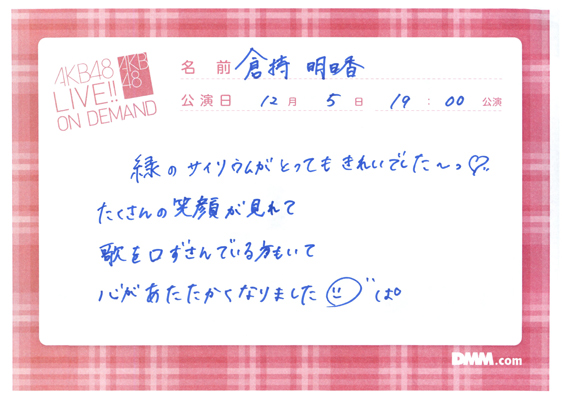 AKB48
LIVE!!
ON DEMAND
AKB
48
名 前 倉持 明日香
公演日 12月 5日 19:00 公演
緑のサイリウムがとってもきれいでした〜っ♡
たくさんの笑顔が見れて
歌を口ずさんでいる方もいて
心があたたかくなりました ぱ
DMM.com